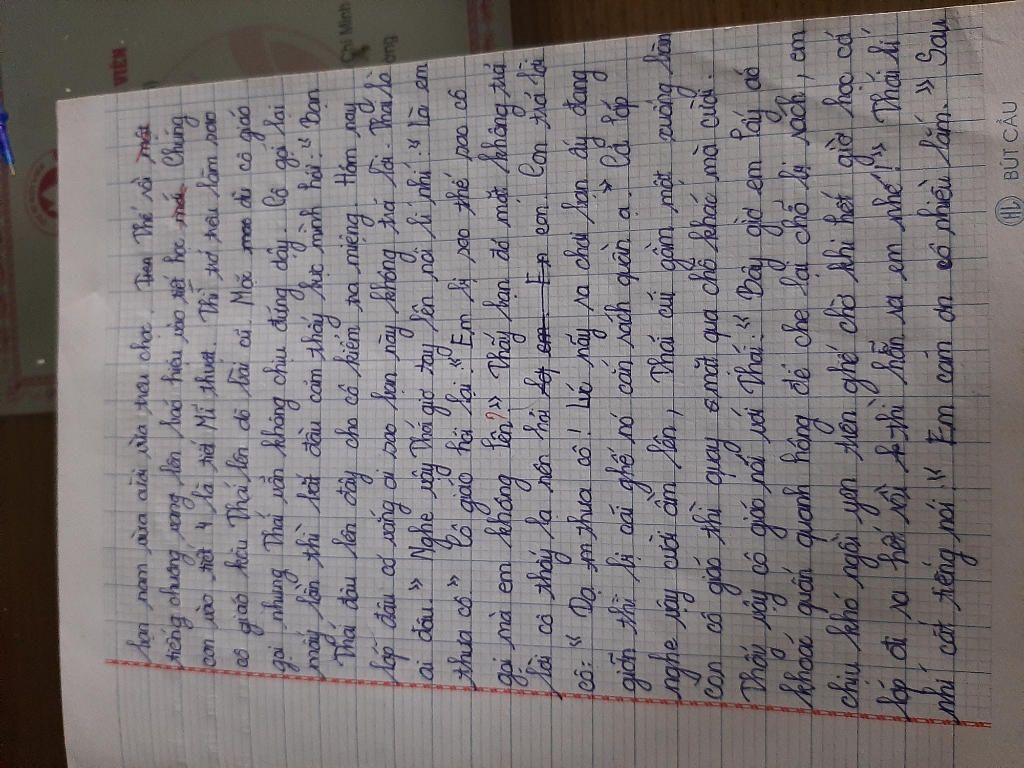 bạn nam vừa cười vừa trêu chọc. Thế rồi
tiếng chuông vang lên báo hiệu vào tiết học mới. Chúng
con vào tiết 4 là tiết Mĩ thuật. Thì
cô giáo kêu Thái lên để bài cũ. Mặc dù cô giáo
gọi nhưng Thái vẫn không chịu đứng dậy. Cô gọi lại
mấy lần thì bắt đầu cảm thấy bực mình hỏi: "Bạn
Thái đâu lên đây cho cô kiểm ra miệng. Hôm nay
lớp đâu có vắng ai sao bạn này không trả lời. Thái là
ai đâu." Nghe vậy Thái giơ tay lên nói lí nhí: "Là em
thưa cô" Cô giáo hỏi lại: "Em bị sao thế sao cô
gọi mà em không lên?" Thấy bạn đó mãi không trả
lời cô thấy lạ nên hỏi con. Con trả lời
cô: "Dạ thưa cô! Lúc nãy ra chơi bạn ấy đang
giỡn thì bị cái ghế nó cán rách quần ạ." Cả lớp
nghe vậy cười ầm lên, Thái cúi gầm mặt xuống bàn
còn cô giáo thì quay mặt qua chỗ khác mà cười.
Thấy vậy cô giáo nói với Thái: "Bây giờ em lấy áo
khoác quấn quanh hông để che lại chỗ bị rách, em
chịu khó ngồi yên trên ghế chờ khi hết giờ học cả
lớp đi ra hết rồi thì hẵn ra em nhé!" Thái lí
nhí cất tiếng nói: "Em cảm ơn cô nhiều lắm." Sau
VIÊN
Chí Minh
HL BÚT CẬU